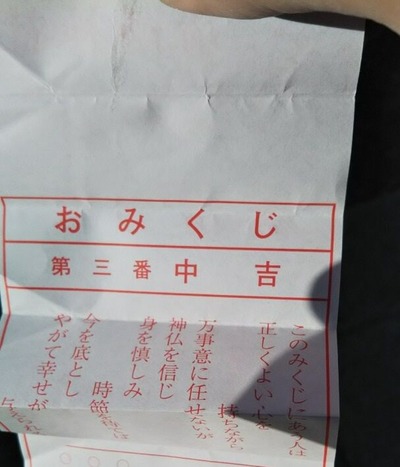 おみくじ
第三番 中吉
このみくじにあう人は
正しくよい心を
持ちながら
万事意に任せないが
神仏を信じ
身を慎しみ
時節
今を底とし
やがて幸せが